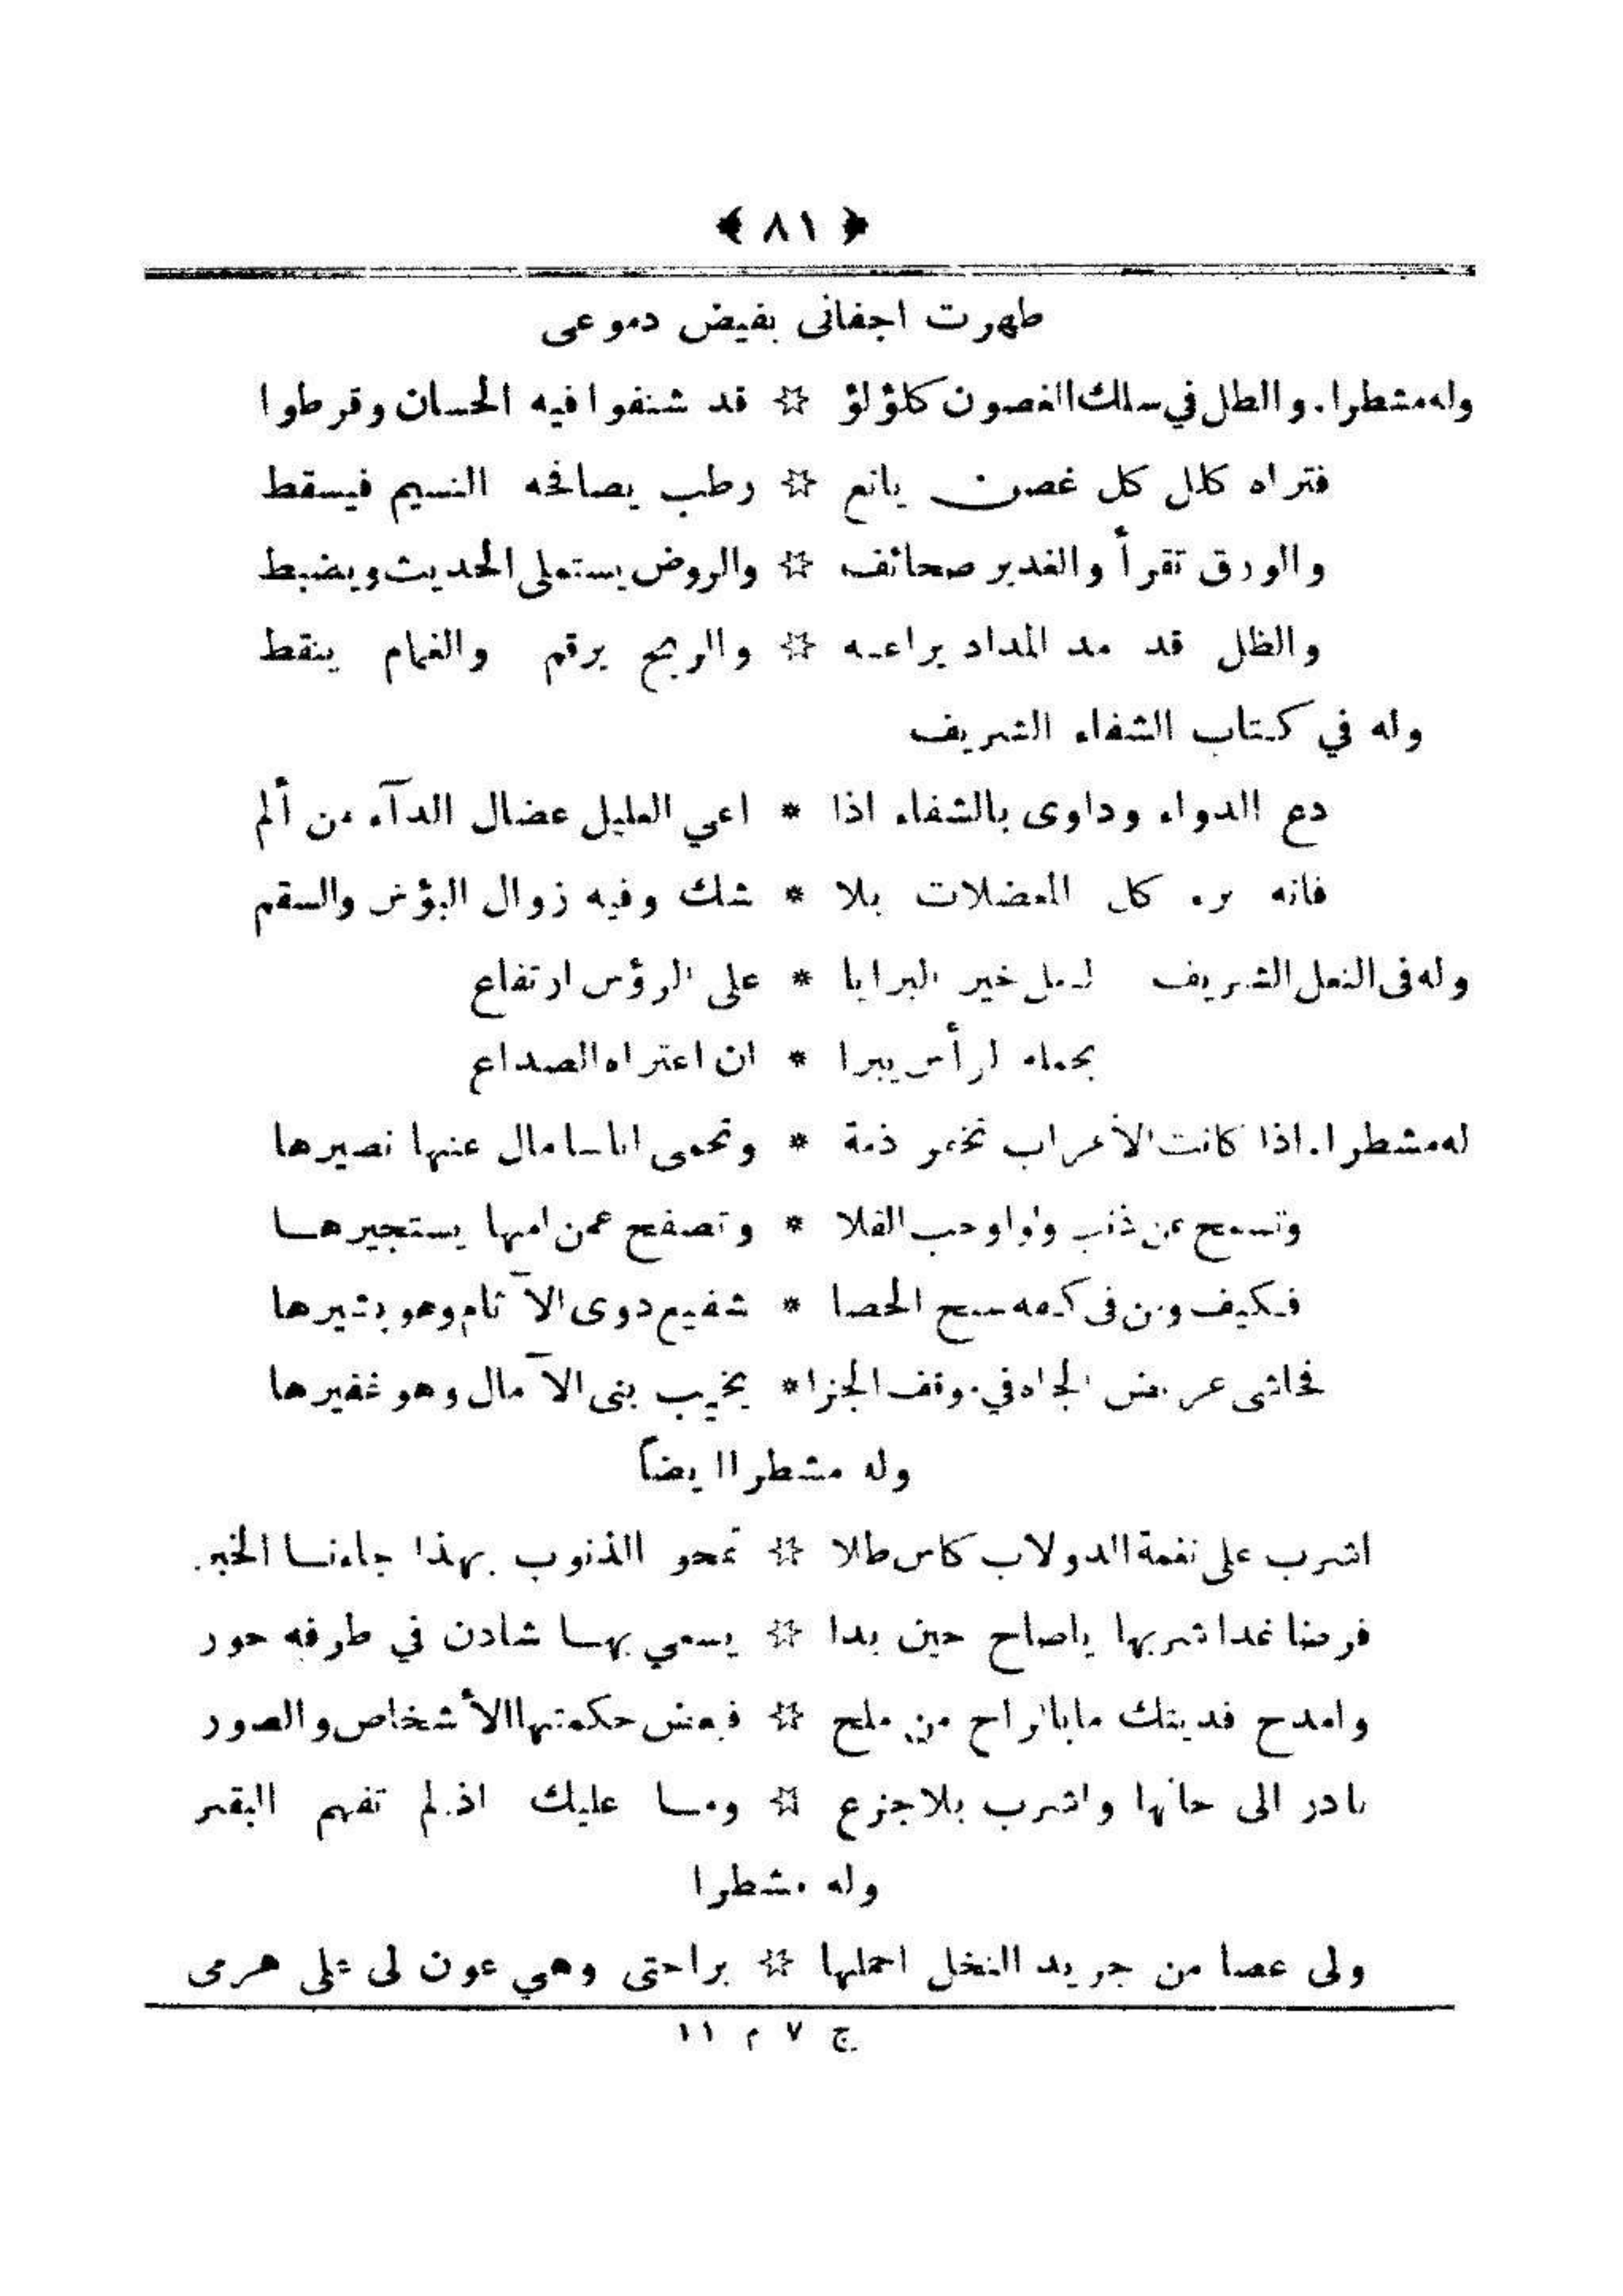 ﴿ ٨١ ﴾
طهرت اجفانى بفيض دموعى
وله مشطرا. والطل في سلك الغصون كلؤلؤ * قد شنفوا فيه الحسان وقرطوا
فتراه كلل كل غصن يانع * رطب يصافحه النسيم فيسقط
والورق تقرأ والغدير صحائف * والروض يستملى الحديث ويضبط
والظل قد مد المداد يراعه * والريح يرقم والغمام ينقط
وله في كتاب الشفاء الشريف
دع الدواء وداوى بالشفاء اذا * اعي العليل عضال الدآء من ألم
فانه برء كل المعضلات بلا * شك وفيه زوال البؤس والسقم
وله فى النعل الشريف لنعل خير البرايا * على الرؤس ارتفاع
بحمله الرأس يبرا * ان اعتراه الصداع
له مشطرا. اذا كانت الأعراب تخفر ذمة * وتحمى اناسا مال عنها نصيرها
وتسمح عن ذنب ولو اوحب الفلا * وتصفح عمن امها يستجيرها
فكيف ومن فى كفه سبح الحصا * شفيع ذوى الآثام وهو بشيرها
فحاشى عريض الجاه في موقف الجزا * يخيب بنى الآمال وهو غفيرها
وله مشطرا ايضاً
اشرب على نغمة الدولاب كاس طلا * تمحو الذنوب بهذا جاءنا الخبر
فرضا غدا شربها ياصاح حين بدا * يسعي بها شادن في طرفه حور
وامدح فديتك مابالراح من ملح * فبعض حكمتها الأشخاص والصور
بادر الى حانها واشرب بلا جزع * وما عليك اذ لم تفهم البقر
وله مشطرا
ولى عصا من جريد النخل احملها * براحتى وهي عون لى على هرمى
ج ٧ م ١١